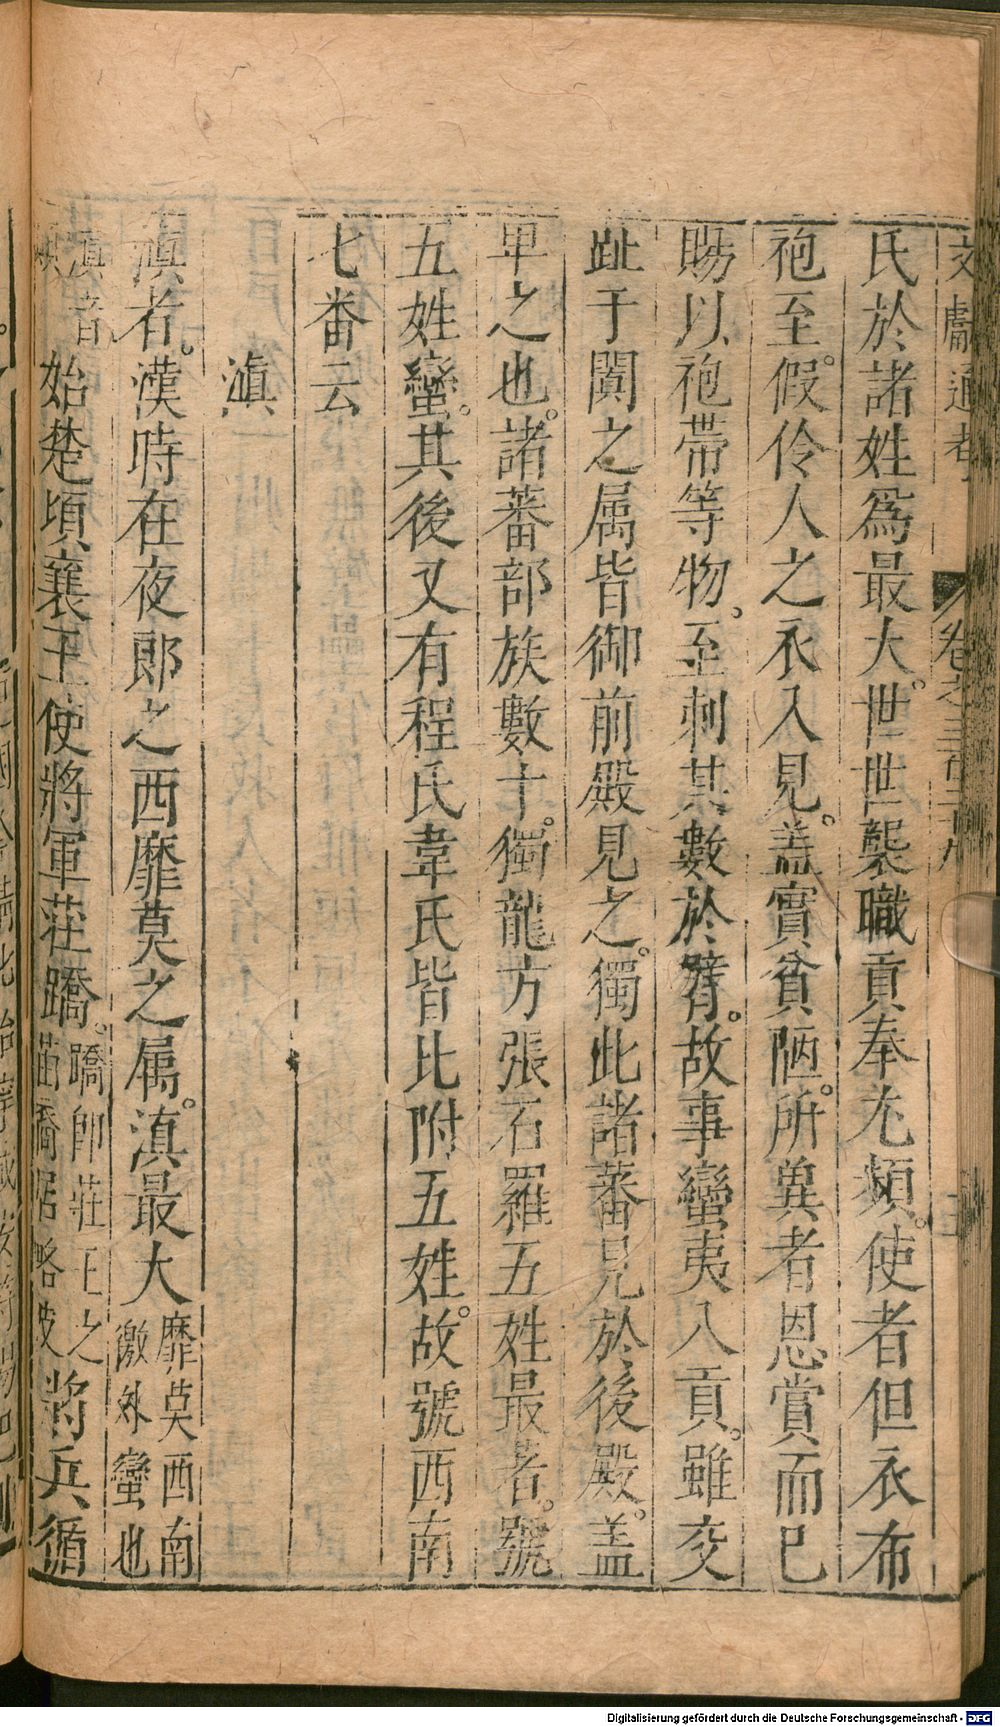 文獻通考 卷之三百二十九
氏於諸姓爲最大。世世襲職貢奉尤頻。使者但衣布
袍至。假伶人之衣入見。蓋實貧陋。所兾者恩賞而已
賜以袍帶等物。至刺其數於臂。故事蠻夷入貢。雖交
趾于闐之属皆御前殿見之。獨此諸蕃見於後殿。盖
卑之也。諸蕃部族數十。獨龍方張石羅五姓最著。號
五姓蠻。其後又有程氏韋氏皆比附五姓。故號西南
七番云
滇
滇者。漢時在夜郎之西靡莫之属。滇最大靡莫西南徼外蠻也
滇者始楚頃襄王使將軍莊蹻。蹻即莊王之苗裔居略彼將兵循
Digitalisierung gefördert durch die Deutsche Forschungsgemeinschaft - DFG